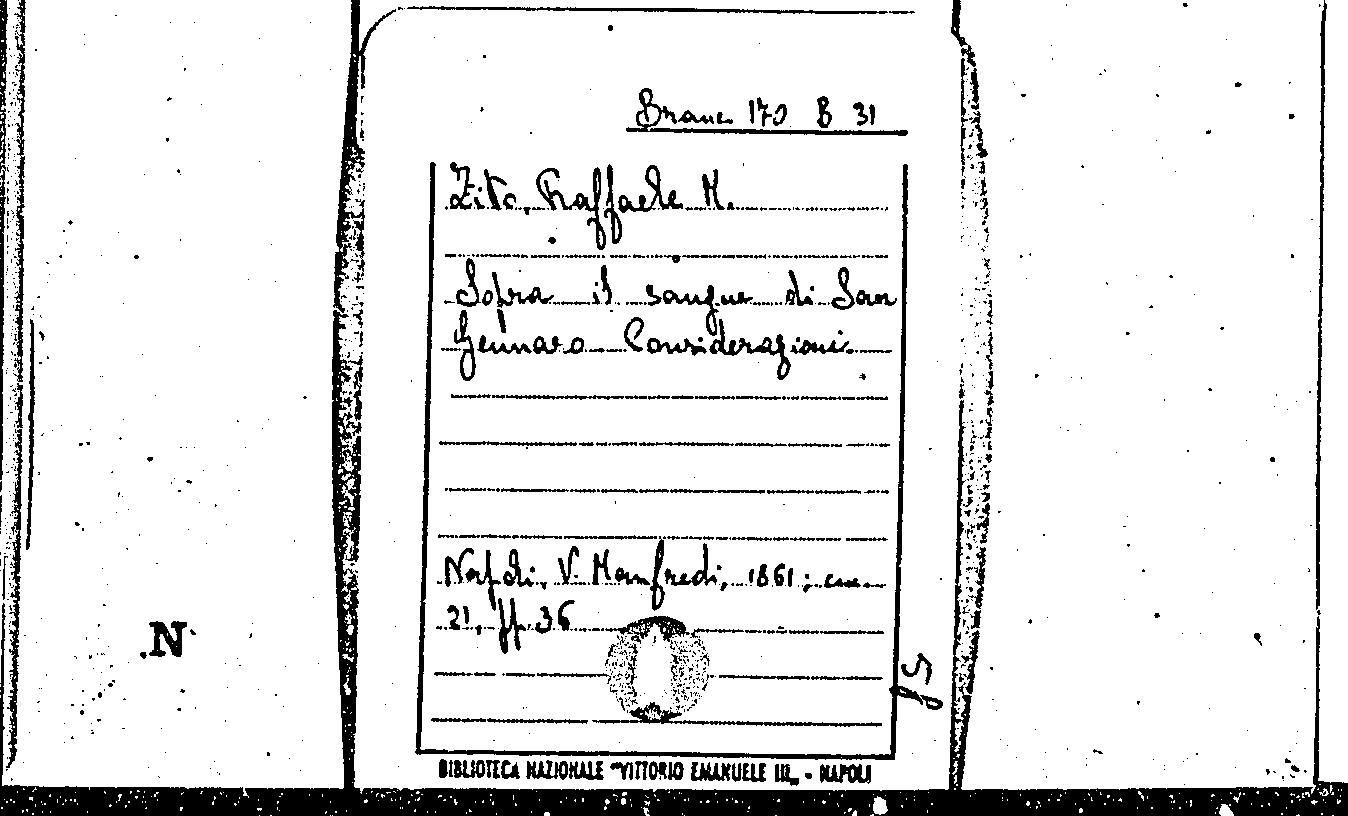 Branc. 170 B 31
Zito, Raffaele M.
Sopra il sangue di San
Gennaro Considerazioni.
Napoli, V. Manfredi, 1861; cm.
21, pp. 36
.N
BIBLIOTECA NAZIONALE "VITTORIO EMANUELE III„ - NAPOLI